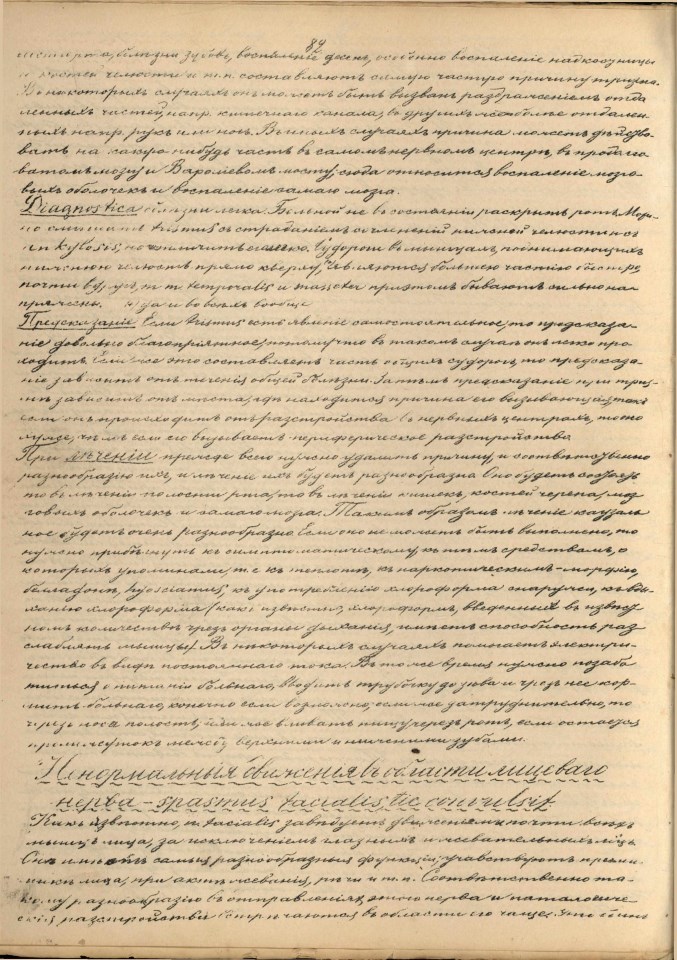 84
болезни зубовъ, воспаленіе десенъ, особенно воспаленіе надкостницы
и костей челюсти и т.п. составляютъ самую частую причину тризма.
Въ некоторыхъ случаяхъ онъ можетъ быть вызванъ раздраженіемъ отда
ленныхъ частей, напр. кишечнаго канала, въ другихъ же болѣе отдален
ныхъ напр. рукъ или ногъ. Въ иныхъ случаяхъ причина можетъ дѣйство
вать на какую нибудь часть въ самомъ нервномъ центрѣ, въ продолго
ватомъ мозгу и Вароліевомъ мосту; сюда относится воспаленіе мозго
выхъ оболочекъ и воспаленіе самаго мозга.
Diagnostica болѣзни легка. Больной не въ состояніи раскрыть ротъ. Мож
но смѣшать trismus съ страданіемъ сочлененій нижней челюсти
ankylosis, но отличить легко. Судороги въ мышцахъ, поднимающихъ
нижнюю челюсть прямо кверху, являются большею частію обоюдо
m. m. temporalis и masseter при этомъ бываютъ сильно на
пряжены. и вообще
Предсказаніе Если trismus есть явленіе самостоятельное, то предсказа-
ніе довольно благопріятное, потому что въ такомъ случаѣ онъ легко про
ходитъ. Если же это составляетъ часть общихъ судорогъ, то предсказа
ніе зависитъ отъ теченія общей болѣзни. Затѣмъ предсказаніе при триз-
мѣ зависитъ отъ мѣста, гдѣ находится причина его вызывающая, такъ
если онъ происходитъ отъ разстройства въ нервныхъ центрахъ, то
хуже, чѣмъ если его вызываетъ периферическое разстройство.
При лѣченіи прежде всего нужно удалить причину, и соотвѣтственно
разнообразію ихъ, и лѣченіе ихъ будетъ разнообразно. Оно будетъ состоять
то въ лѣченіи полости рта, то въ лѣченіи кишекъ, костей черепа, моз
говыхъ оболочекъ и самаго мозга. Такимъ образомъ лѣченіе каузаль
ное будетъ очень разнообразно. Если оно не можетъ быть выполнено, то
нужно прибѣгнуть къ симптоматическому, къ тѣмъ средствамъ, о
которыхъ упоминали, т.е. къ теплотѣ, къ наркотическимъ - морфію,
белладоннѣ, hyosciamus, къ употребленію хлороформа снаружи, къ вды
ханію хлороформа (какъ извѣстно, хлороформъ, введенный въ извѣст
номъ количествѣ чрезъ органы дыханія, имѣетъ способность раз
слаблять мышцы). Въ нѣкоторыхъ случаяхъ помогаетъ электри-
чество въ видѣ постояннаго тока. Въ то же время нужно позабо
титься о питаніи больнаго, вводить трубочку до зѣва и чрезъ нее кор-
мить больнаго, конечно если возможно; если же затруднительно, то
черезъ носа полость, или же вливать пищу черезъ ротъ, если остается
промежутокъ между верхними и нижними зубами.
Ненормальныя движенія въ области лицеваго
нерва - spasmus facialis, tic convulsif.
Какъ извѣстно, n. facialis завѣдуетъ движеніями почти всѣхъ
мышцъ лица, за исключеніемъ глазныхъ и жевательныхъ мцъ.
Онъ имѣетъ самыя разнообразныя функціи, участвуютъ при ми-
микѣ лица, при актѣ жеванія, рѣчи и т.п. Соотвѣтственно та-
кому разнообразію въ отправленіяхъ этого нерва и патологиче-
скія разстройства встрѣчаются въ области его чаще.